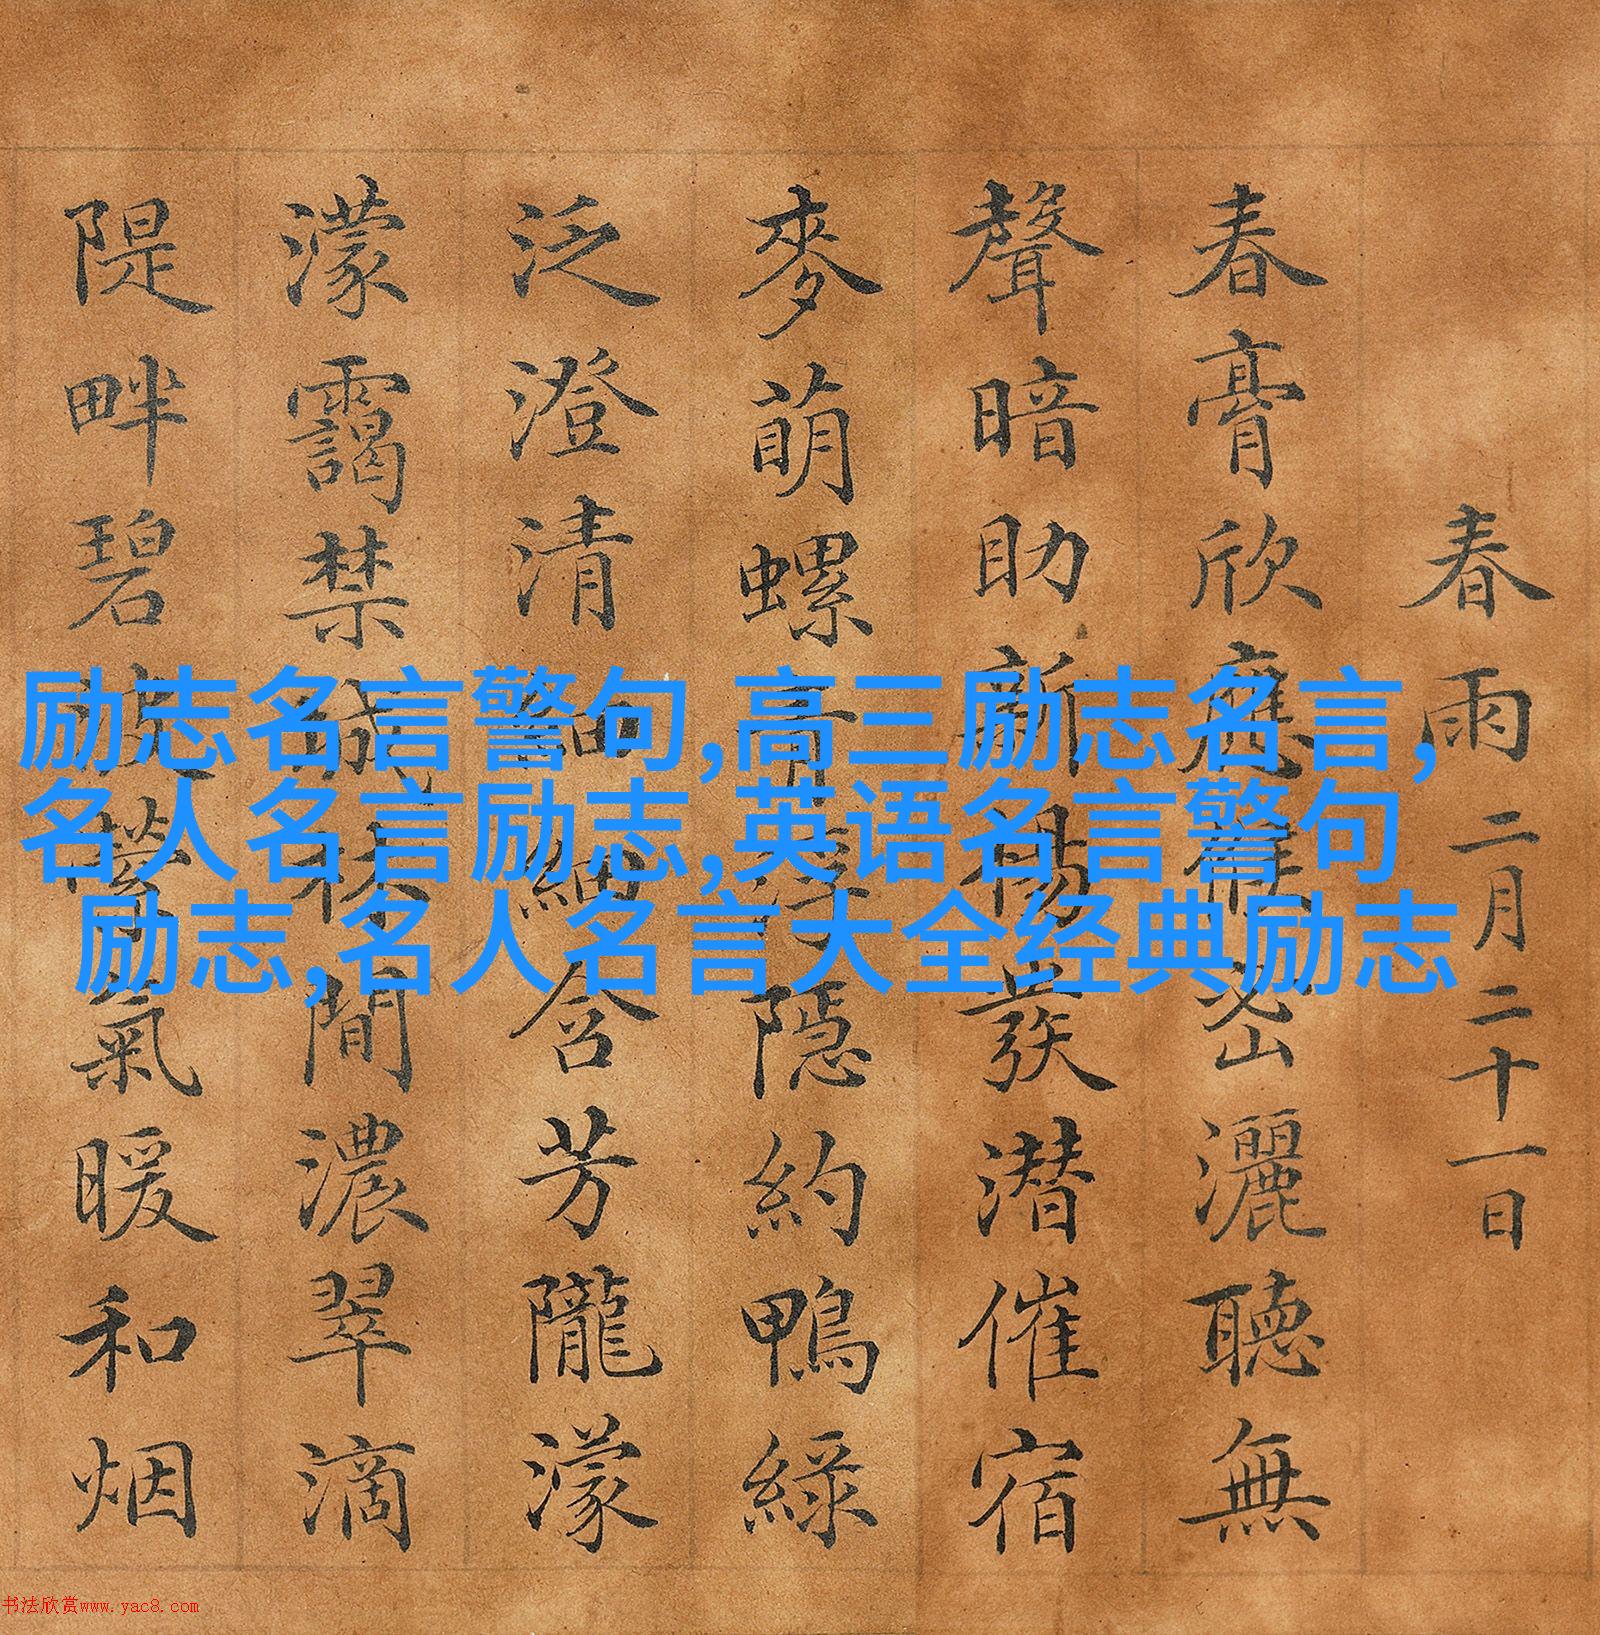 春雨 二月二十一日
春膏欣應候密灑聽無
聲暗助新楊發潜催宿
麥萌螺青浮隱約鴨綠
泛澄清油細含芳隴濛
濛靄禁城林閒濃翠滴
隄畔碧氣暖和烟
励志名言警句,高三励志名言,
名人名言励志,英语名言警句
励志,名人名言大全经典励志
书法欣赏www.yac8.com